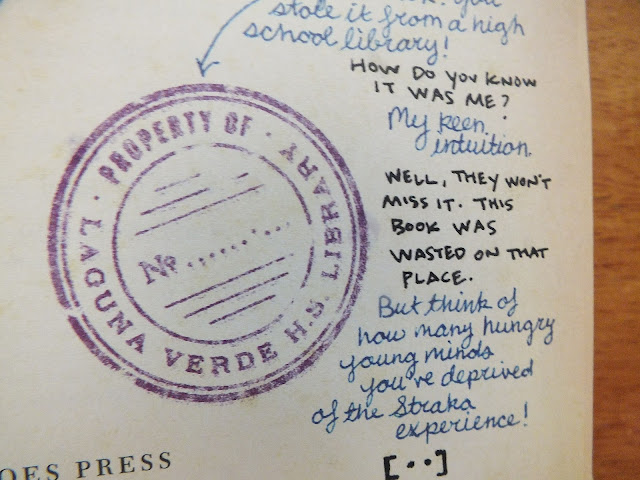 You
stole it from a high
school library!
HOW DO YOU KNOW
IT WAS ME?
My keen
intuition.
WELL, THEY WON'T
MISS IT. THIS
BOOK WAS
WASTED ON THAT
PLACE.
But think of
how many hungry
young minds
you've deprived
of the Straka
experience!
[··]
· PROPERTY OF ·
LAGUNA VERDE H.S. LIBRARY
No ..........
OES PRESS